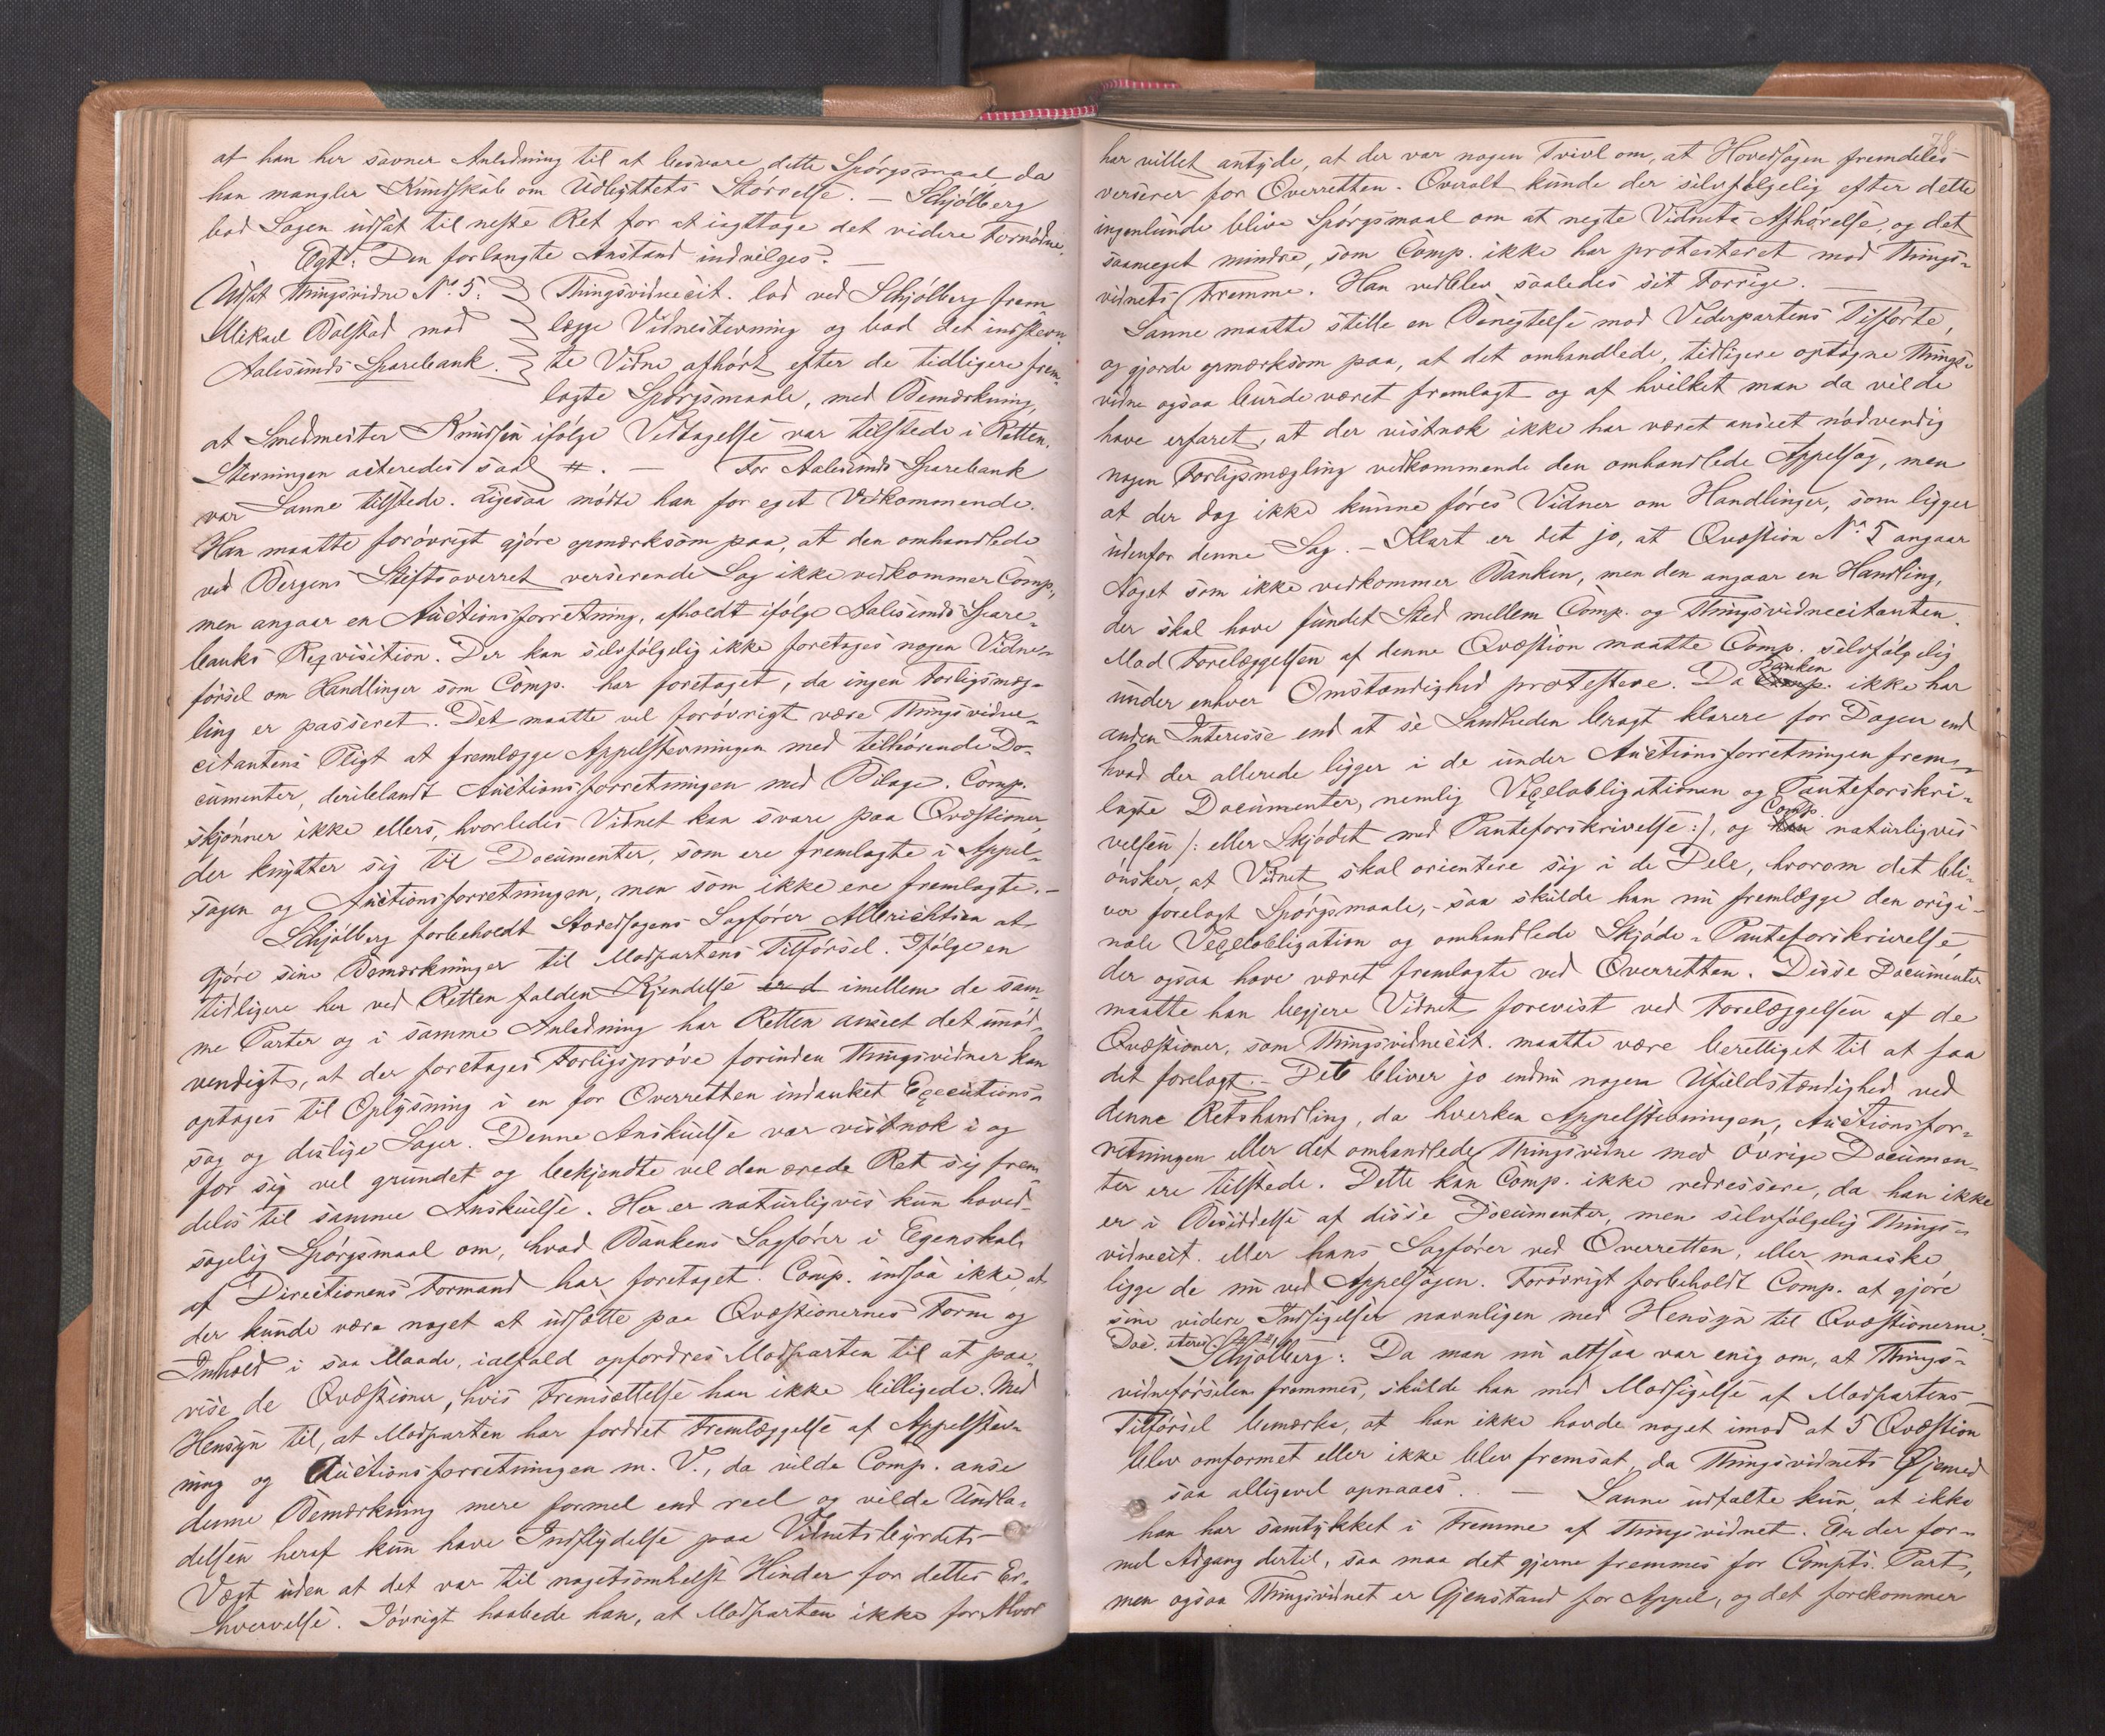 at han her savner Anledning til at besvare dette Spørgsmaal da
han mangler Kundskab om Udbyttets Størrelse. – Schjølberg
bad Sagen udsat til neste Ret for at iagttage det videre Fornødne.
Egt: Den forlangte Anstand indvilges. –
Udsat Thingsvidne No 5:
Mikael Dalstad mod
Aalesunds Sparebank.
Thingsvidnecit. lod ved Schjølberg frem
lægge Vidnestevning og bad det indstevn
te Vidne afhørt efter de tidligere frem
lagte Spørgsmaale, med Bemærkning,
at Smedmester Knudsen ifølge Vedtagelse var tilstede i Retten.
Stevningen acteredes saal #. – For Aalesunds Sparebank
var Sanne tilstede. Ligesaa mødte han for eget Vedkommende.
Han maatte forøvrigt gjøre opmærksom paa, at den omhandlede
ved Bergens Stiftsoverret verserende Sag ikke vedkommer Comp.,
men angaar en Auctionsforretning, afholdt ifølge Aalesunds Spare-
banks Reqvisition. Der kan selvfølgelig ikke foretages nogen Vidne-
førsel om Handlinger som Comp. har foretaget, da ingen Forligsmæg-
ling er passeret. Det maatte vel forøvrigt være Thingsvidne-
citantens Pligt at fremlægge Appelstevningen med tilhørende Do-
cumenter, deriblandt Auctionsforretningen med Bilage. Comp.
skjønner ikke ellers, hvorledes Vidnet kan svare paa Qvæstioner,
der knytter sig til Documenter, som ere fremlagte i Appel-
sagen og Auctionsforretningen, men som ikke ere fremlagte. –
Schjølberg forbeholdt Hovedsagens Sagfører Albrichtsen at
gjøre sine Bemærkninger til Modpartens Tilførsel. Ifølge en
tidligere her ved Retten falden Kjendelse imellem de sam-
me Parter og i samme Anledning har Retten anseet det unød-
vendigt, at der foretages Forligsprøve forinden Thingsvidner kan
optages til Oplysning i en for Overretten indanket Executions-
sag og deslige Sager. Denne Anskuelse var vistnok i og
for sig vel grundet og bekjendte vel den ærede Ret sig frem
deles til samme Anskuelse. Her er naturligvis kun hoved-
sagelig Spørgsmaal om, hvad Bankens Sagfører i Egenskab
af Directionens Formand har foretaget. Comp. indsaa ikke, at
der kunde være noget at udsætte paa Qvæstionernes Form og
Indhold i saa Maade, ialfald opfordres Modparten til at paa-
vise de Qvæstioner, hvis Fremsættelse han ikke billigede. Med
Hensyn til, at Modparten har fordret Fremlæggelse af Appelstev-
ning og Auctionsforretningen m. V., da vilde Comp. anse
denne Bemærkning mere formel end reel og vilde Undla-
delsen heraf kun have Indflydelse paa Vidnetsbyrdets
Vægt uden at det var til nogetsomhelst Hinder for dettes Er-
hvervelse. Iøvrigt haabede han, at Modparten ikke for Alvor
78
har villet antyde, at der var nogen Tvivl om, at Hovedsagen fremdeles
verserer for Overretten. Overalt kunde der selvfølgelig efter dette
ingenlunde blive Spørgsmaal om at negte Vidnets Afhørelse, og det
saameget mindre, som Comp. ikke har protesteret mod Things-
vidnets Fremme. Han vedblev saaledes sit Forrige. –
Sanne maatte stille en Benegtelse mod Vederpartens Tilførte,
og gjorde opmærksom paa, at det omhandlede, tidligere optagne Things-
vidne ogsaa burde været fremlagt og af hvilket man da vilde
have erfaret, at der vistnok ikke har været anseet nødvendig
nogen Forligsmægling vedkommende den omhandlede Appelsag, men
at der dog ikke kunne føres Vidner om Handlinger, som ligger
udenfor denne Sag. – Klart er det jo, at Qvæstion No 5 angaar
Noget som ikke vedkommer Banken, men den angaar en Handling,
der skal have fundet Sted mellem Comp. og Thingsvidnecitanten.
Mod Forelæggelsen af denne Qvæstion maatte Comp. selvfølgelig
under enhver Omstændighed protestere. Da Banken ikke har
anden Interesse end at se Sandheden bragt klarere for Dagen end
hvad der allerede ligger i de under Auctionsforretningen frem-
lagte Documenter, nemlig Vexelobligationen og Panteforskri-
velsen /: eller Skjødet med Panteforskrivelse :/, og Comp. naturligvis
ønsker, at Vidnet skal orientere sig i de Dele, hvorom det bli-
ver forelagt Spørgsmaale, – saa skulde han nu fremlægge den origi-
nale Vexelobligation og omhandlede Skjøde-Panteforskrivelse,
der ogsaa have været fremlagte ved Overretten. Disse Documenter
maatte han begjere Vidnet forevist ved Forelæggelsen af de
Qvæstioner, som Thingsvidnecit. maatte være berettiget til at faa
det forelagt. – Det bliver jo endnu nogen Ufuldstændighed ved
denne Retshandling, da hverken Appelstevningen, Auctionsfor-
retningen eller det omhandlede Thingsvidne med øvrige Documen-
ter ere tilstede. Dette kan Comp. ikke redressere, da han ikke
er i Besiddelse af disse Documenter, men selvfølgelig Things-
vidnecit. eller hans Sagfører ved Overretten, eller maaske
ligge de nu ved Appelsagen. Forøvrigt forbeholdt Comp. at gjøre
sine videre Indsigelser navnligen med Hensyn til Qvæstionerne. –
Doc. actered: # #
Schjølberg: Da man nu altsaa var enig om, at Things-
vidneførselen frammes, skulde han med Modsigelse af Modpartens
Tilførsel bemærke, at han ikke havde noget imod at 5 Qvæstion
blev omformet eller ikke blev fremsat, da Thingsvidnets Øjemed
saa alligevel opnaaes. – Sanne udtalte kun, at ikke
han har samtykket i Fremme af Thingsvidnet. Er der for-
mel Adgang dertil, saa maa det gjerne fremmes for Compts. Part,
men ogsaa Thingsvidnet er Gjenstand for Appel, og det forekommer